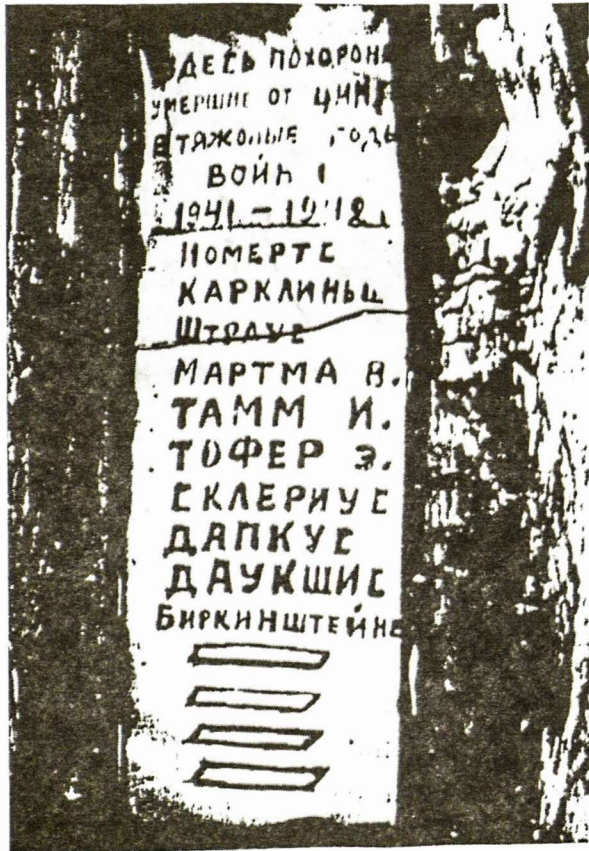 ЗДЕСЬ ПОХОРОН
УМЕРШИЕ ОТ ЦИНГ
В ТЯЖОЛЫЕ ГОДЫ
ВОЙН
1941 –
ПОМЕРТС
КАРКЛИНЬШ
ШТРАУС
МАРТМА В.
ТАММ И.
ТОФЕР Э.
СКЛЕРИУС
ДАПКУС
ДАУКШИС
БИРКИНШТЕЙНЕ